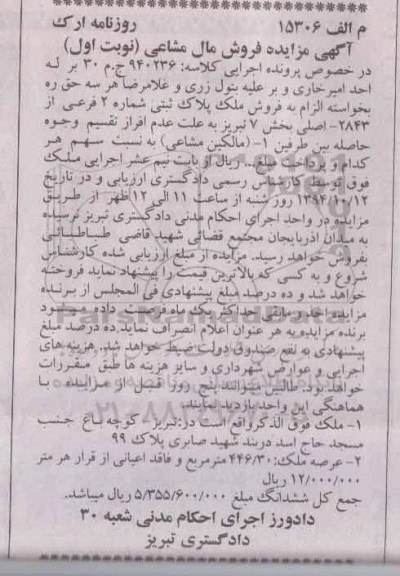 م الف ۱۵۳۰۶ روزنامه ارک
آگهی مزایده فروش مال مشاعی (نوبت اول)
در خصوص پرونده اجرایی کلاسه: ۹۴۰۲۳۶ ج.م ۳۰ بر له
احد امیرخاری و بر علیه بتول زری و غلامرضا هر سه حق ره
بخواسته الزام به فروش ملک پلاک ثبتی شماره ۲ فرعی از
۲۸۴۳- اصلی بخش ۷ تبریز به علت عدم افراز تقسیم وجوه
حاصله بین طرفین ۱- (مالکین مشاعی) به نسبت سهم هر
کدام و پرداخت مبلغ .. ریال از بابت نیم عشر اجرایی ملک
فوق توسط کارشناس رسمی دادگستری ارزیابی و در تاریخ
۱۳۹۴/۱۰/۱۲ روز شنبه از ساعت ۱۱ الی ۱۲ ظهر از طریق
مزایده در واحد اجرای احکام مدنی دادگستری تبریز نرسیده
به میدان آذربایجان مجتمع قضائی شهید قاضی طباطبائی
بفروش خواهد رسید. مزایده از مبلغ ارزیابی شده کارشناس
شروع و به کسی که بالاترین قیمت را پیشنهاد نماید فروخته
خواهد شد و ده درصد مبلغ پیشنهادی فی المجلس از برنده
مزایده اخذ و مابقی حداکثر یک ماه فرصت داده میشود
برنده مزایده به هر عنوان اعلام انصراف نماید ده درصد مبلغ
پیشنهادی به نفع صندوق دولت ضبط خواهد شد. هزینه های
اجرایی و عوارض شهرداری و سایر هزینه ها طبق مقررات
خواهد بود. طالبین میتوانند پنج روز قبل از مزایده با
هماهنگی این واحد بازدید نمایند.
۱- ملک فوق الذکر واقع است در: تبریز- کوچه باغ جنب
مسجد حاج اسد دربند شهید صابری پلاک ۹۹
۲- عرصه ملک: ۴۴۶/۳۰ مترمربع و فاقد اعیانی از قرار هر متر
۱۲/۰۰۰/۰۰۰ ریال
جمع کل ششدانگ مبلغ ۵/۳۵۵/۶۰۰/۰۰۰ ریال میباشد.
دادورز اجرای احکام مدنی شعبه ۳۰
دادگستری تبریز